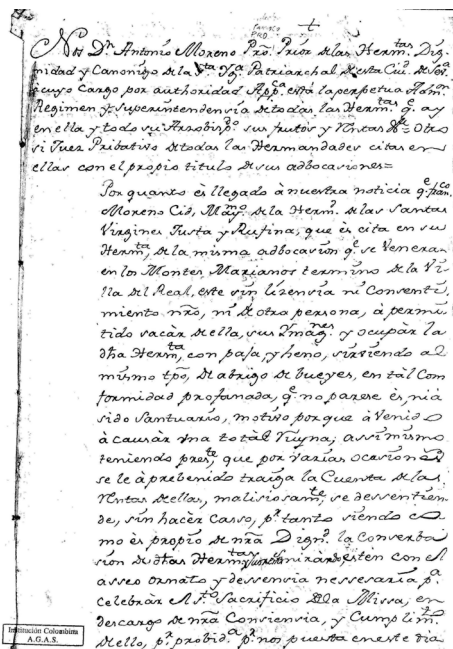 Nos Dn. Antonio Moreno Pro. Prior de las Hermtas. Dig-
nidad y Canonigo de la Sta. Yga. Patriarchal de esta Ciud. de Seva.
à cuyo Cargo por authoridad Appca. està la perpetua Admon.
Regimen y superintendensia de todas las Hermtas. qe. ay
en ella y todo su Arzobispdo. sus frutos y Rentas &a. Otro
si Juez Pribativo de todas las Hermandades citas en
ellas con el propio titulo de sus adbocasiones=
Por quanto ès llegado à nuestra noticia qe. Franco.
Moreno Cid, Maymo. de la Herm. de las Santas
Virgines Justa y Rufina, que ès cita en su
Hermta, de la misma adbocasion qe. se Veneran
en los Montes Marianos termino de la Vi-
lla del Real, este sin lizensia ni Consenti-
miento nro, ni de otra persona, à permi-
tido sacàr de ella, sus Ymagnes. y ocupàr la
dha Hermta, con paja, y heno, sirviendo al
mismo tpo, de abrigo de bueyes, en tàl Com
formidad profanada, qe. no parese ès, ni à
sido santuario, motivo por que à Venido
à causàr una totàl Ruyna; assimismo
teniendo preste, que por varias ocasiones
se le à prebenido traiga la Cuenta de las
Rentas de ellas, malisiosamte, se dessentien-
de, sin hacèr Casso, pr. tanto siendo co
mo ès propio de nra Dign. la Converba
sion de dhas Hermtas mirando estèn con el
asseo ornato y dessensia nessesaria pa.
celebràr el Sto. Sacrificio de la Missa, en
descargo de nra Consiensia, y Cumplimto.
de ello, pr. probida. pr. nos, puesta en este dia
Institución Colombina
A.G.A.S.